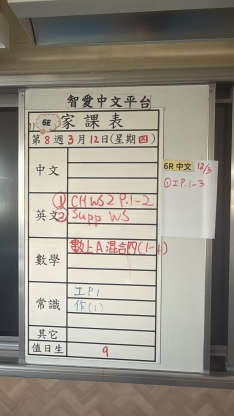 智愛中文平台
6E 家課表
第8週3月12日(星期四)
中文
英文
① CH WS2 P.1-2
② Supp WS
數學
數上A混合四(1-4)
常識
工P1
作(1)
其它
值日生
9
6R中文 12/3
①工P.1-3